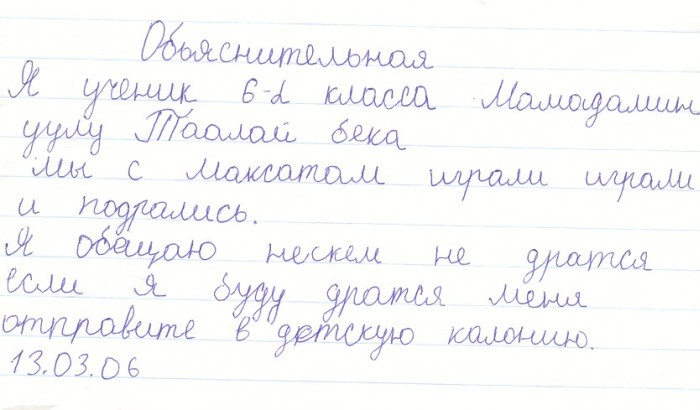 Обьяснительная
Я ученик 6-d класса Мамадамин
уулу Таалай бека
мы с Максатам играли играли
и подрались.
Я обещаю нескем не дратся
если я буду дратся меня
отправите в детскую калонию.
13.03.06